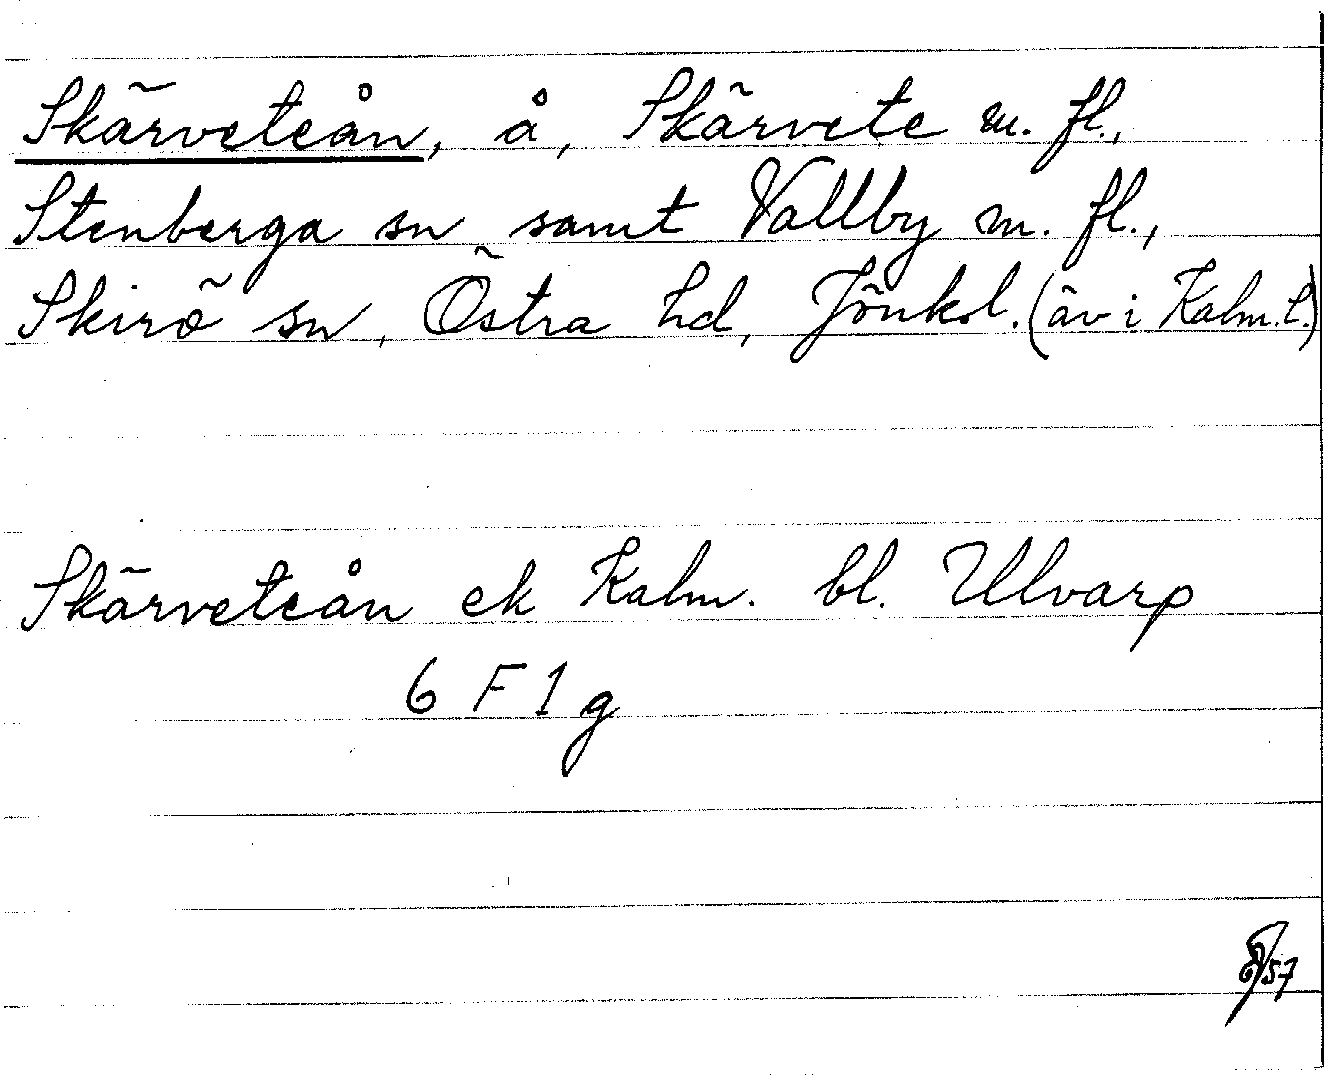 Skärveteån, å, Skärvete m. fl.,
Stenberga sn samt Vallby m. fl.,
Skirö sn, Östra hd, Jönk.l. (äv i Kalm.l.)
Skärveteån ek Kalm. bl. Ulvarp
6 F 1 g